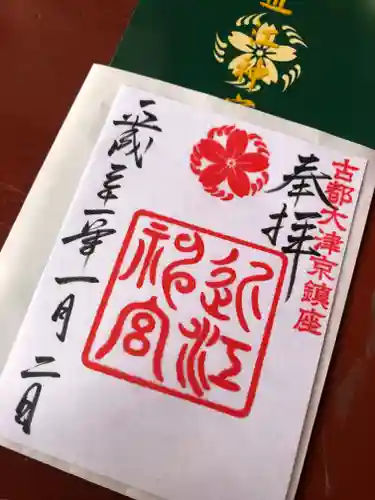 古都大津京鎮座
奉拝
近江
神宮
平成三十一年一月二日